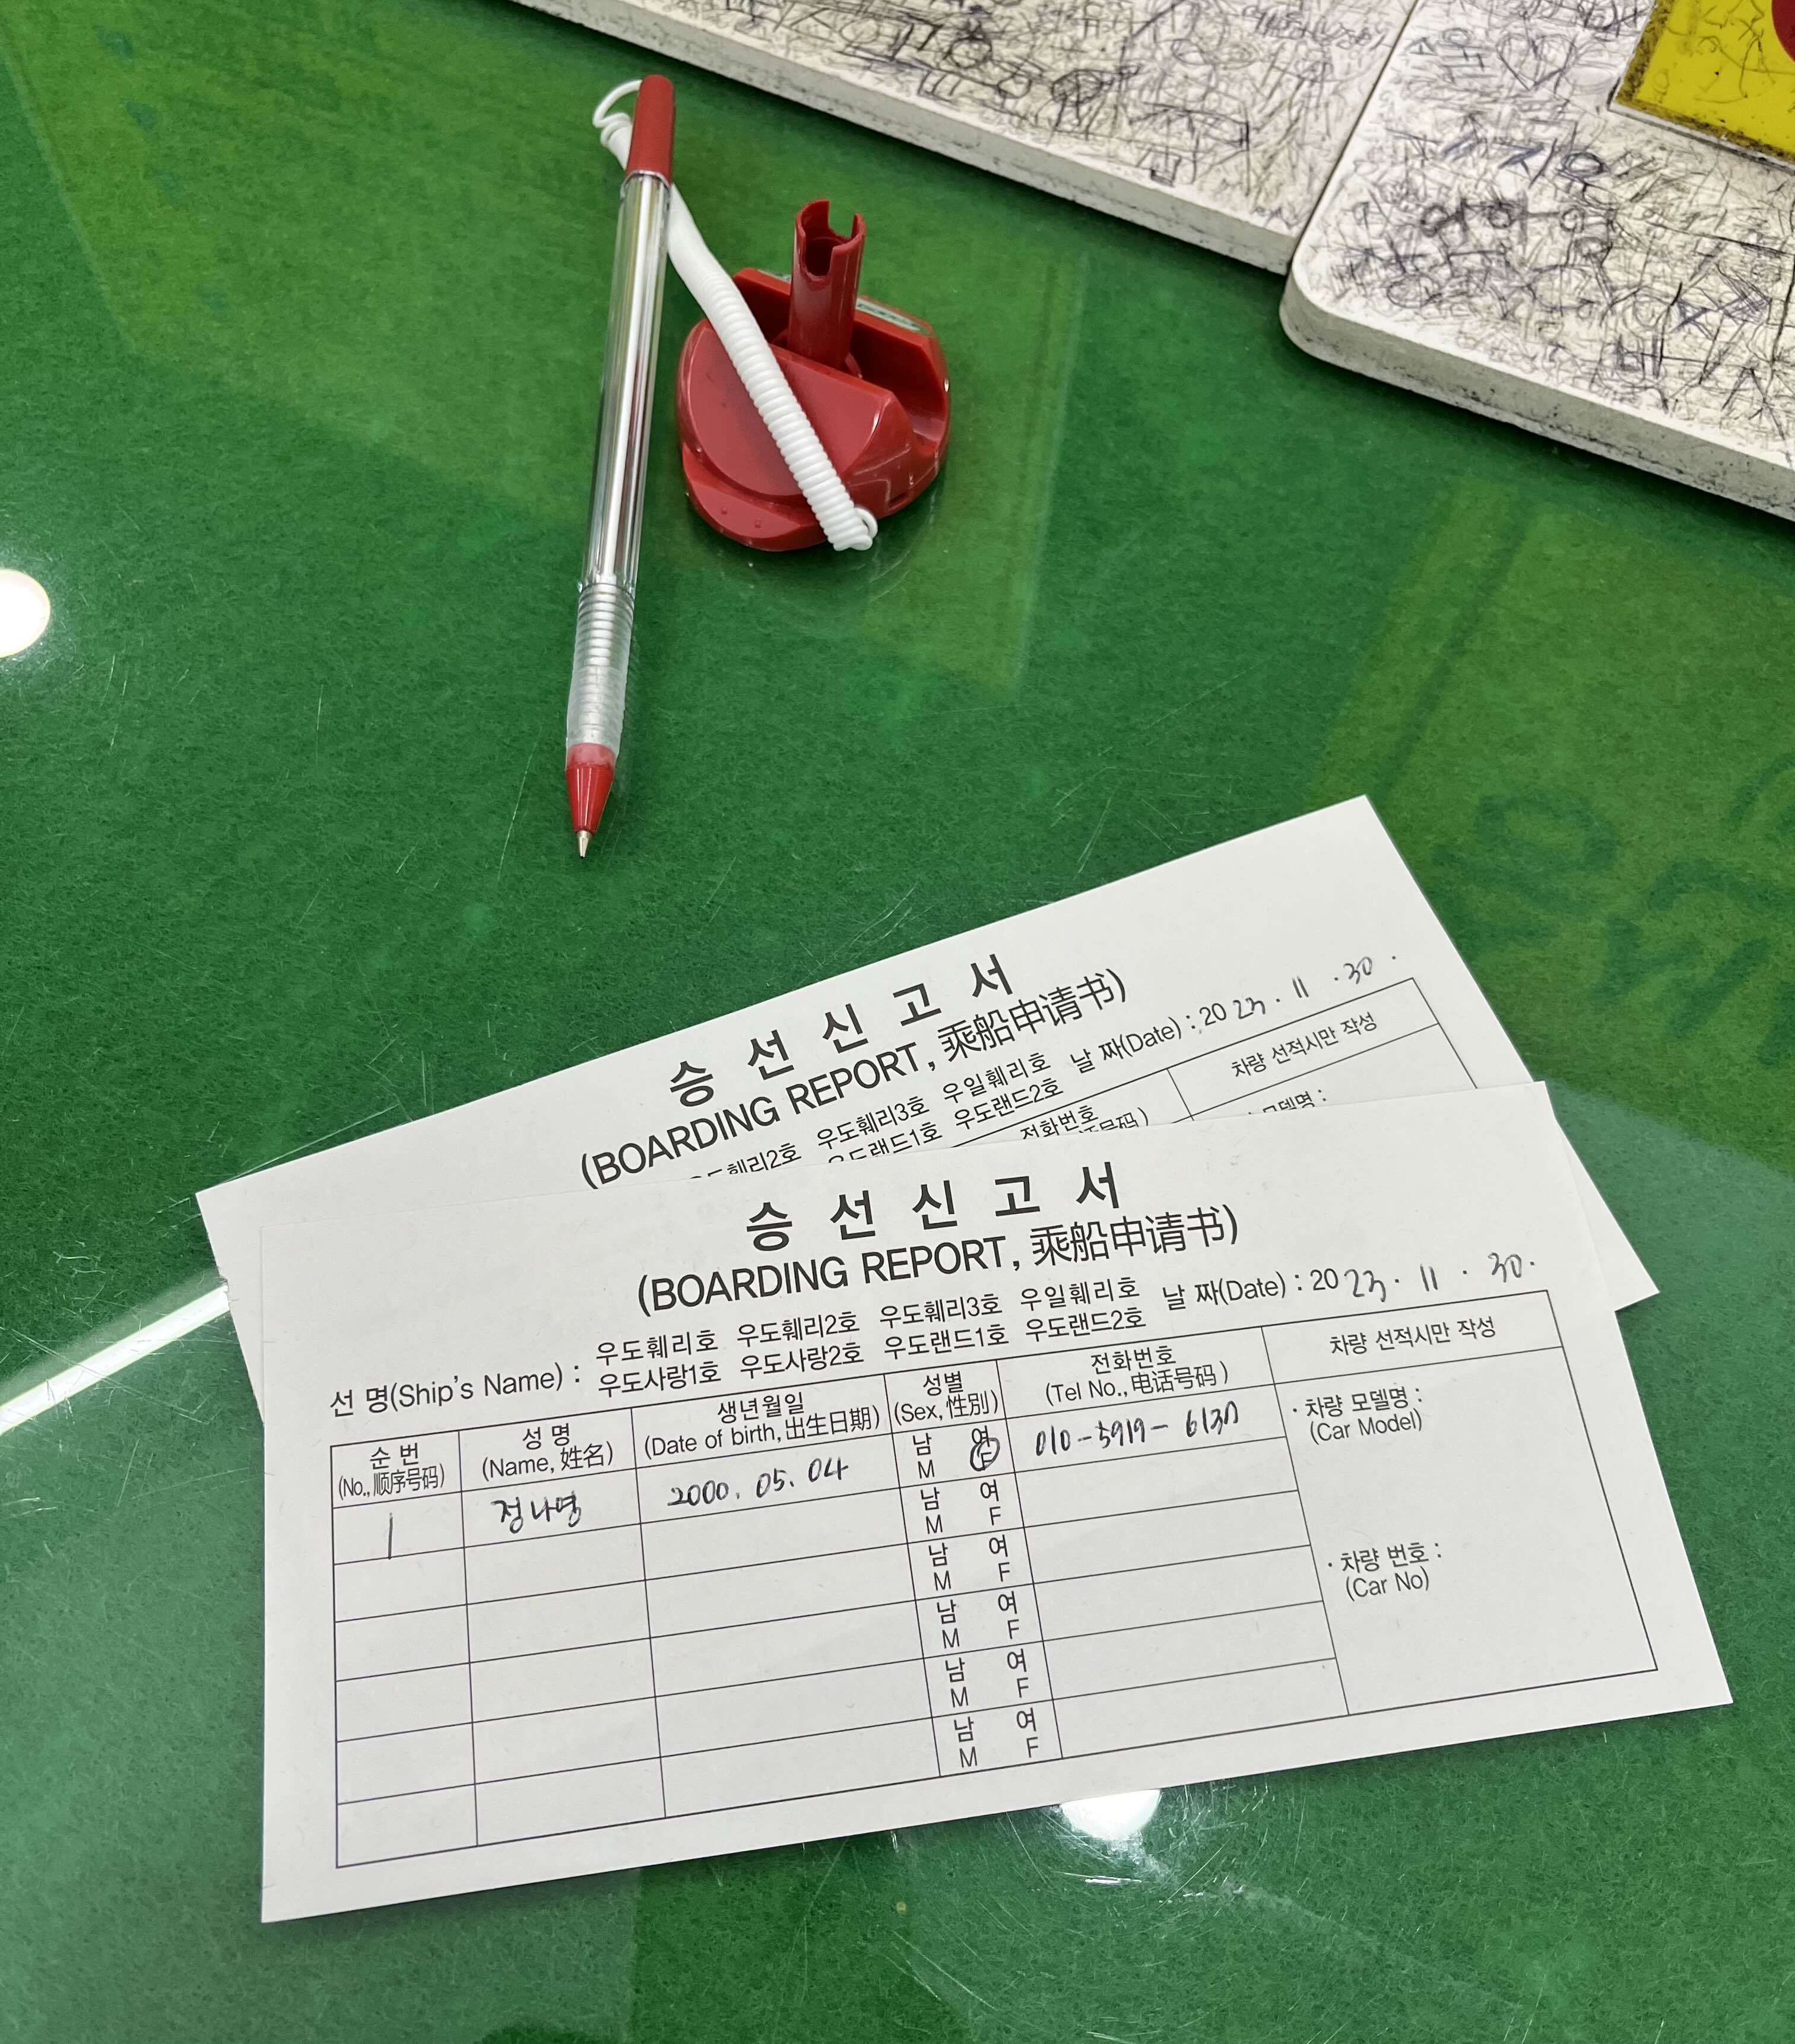 승선신고서
(BOARDING REPORT, 乘船申请书)
날 짜(Date) : 2023. 11 . 30 .
우도훼리2호 우도훼리3호 우일훼리호
우도랜드1호 우도랜드2호
전화번호
차량 선적시만 작성
모델명 :
승선신고서
(BOARDING REPORT, 乘船申请书)
날 짜(Date) : 2023 . 11 . 30.
선 명(Ship's Name) :
우도훼리호 우도훼리2호 우도훼리3호 우일훼리호
우도사랑1호 우도사랑2호 우도랜드1호 우도랜드2호
순 번
(No., 顺序号码)
성 명
(Name, 姓名)
생년월일
(Date of birth, 出生日期)
성별
(Sex, 性別)
전화번호
(Tel No., 电话号码)
차량 선적시만 작성
1 정나영 2000. 05. 04
남 여
M F
010-5919-6137
남 여
M F
남 여
M F
남 여
M F
남 여
M F
남 여
M F
· 차량 모델명 :
(Car Model)
· 차량 번호 :
(Car No)